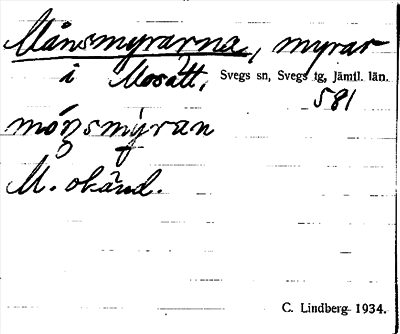 Månsmyrarna, myrar
i Mosätt, Svegs sn, Svegs tg, Jämtl. län.
581
månsmýran
M. okänd.
C. Lindberg 1934.